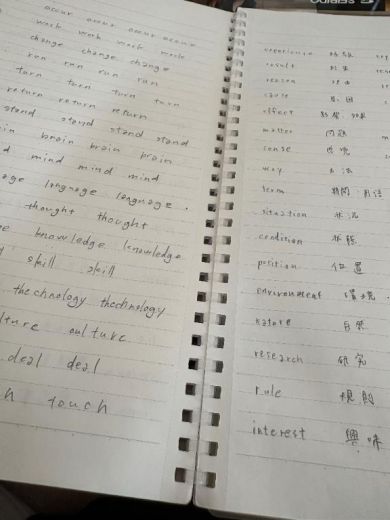 occur occur occur occur
work work work work
change change change
run run run run
turn turn turn turn
return return return
stand stand stand stand
brain brain brain
mind mind mind
language language.
thought thought
knowledge knowledge
skill skill
thechnology thechnology
culture
deal deal
touch
experience 経験
result 結果
reason 理由
cause 原因
effect 影響 効果
matter 問題
sense 感覚
way 方法
term 期間 用語
situation 状況
condition 状態
position 位置
environment 環境
nature 自然
research 研究
rule 規則
interest 興味